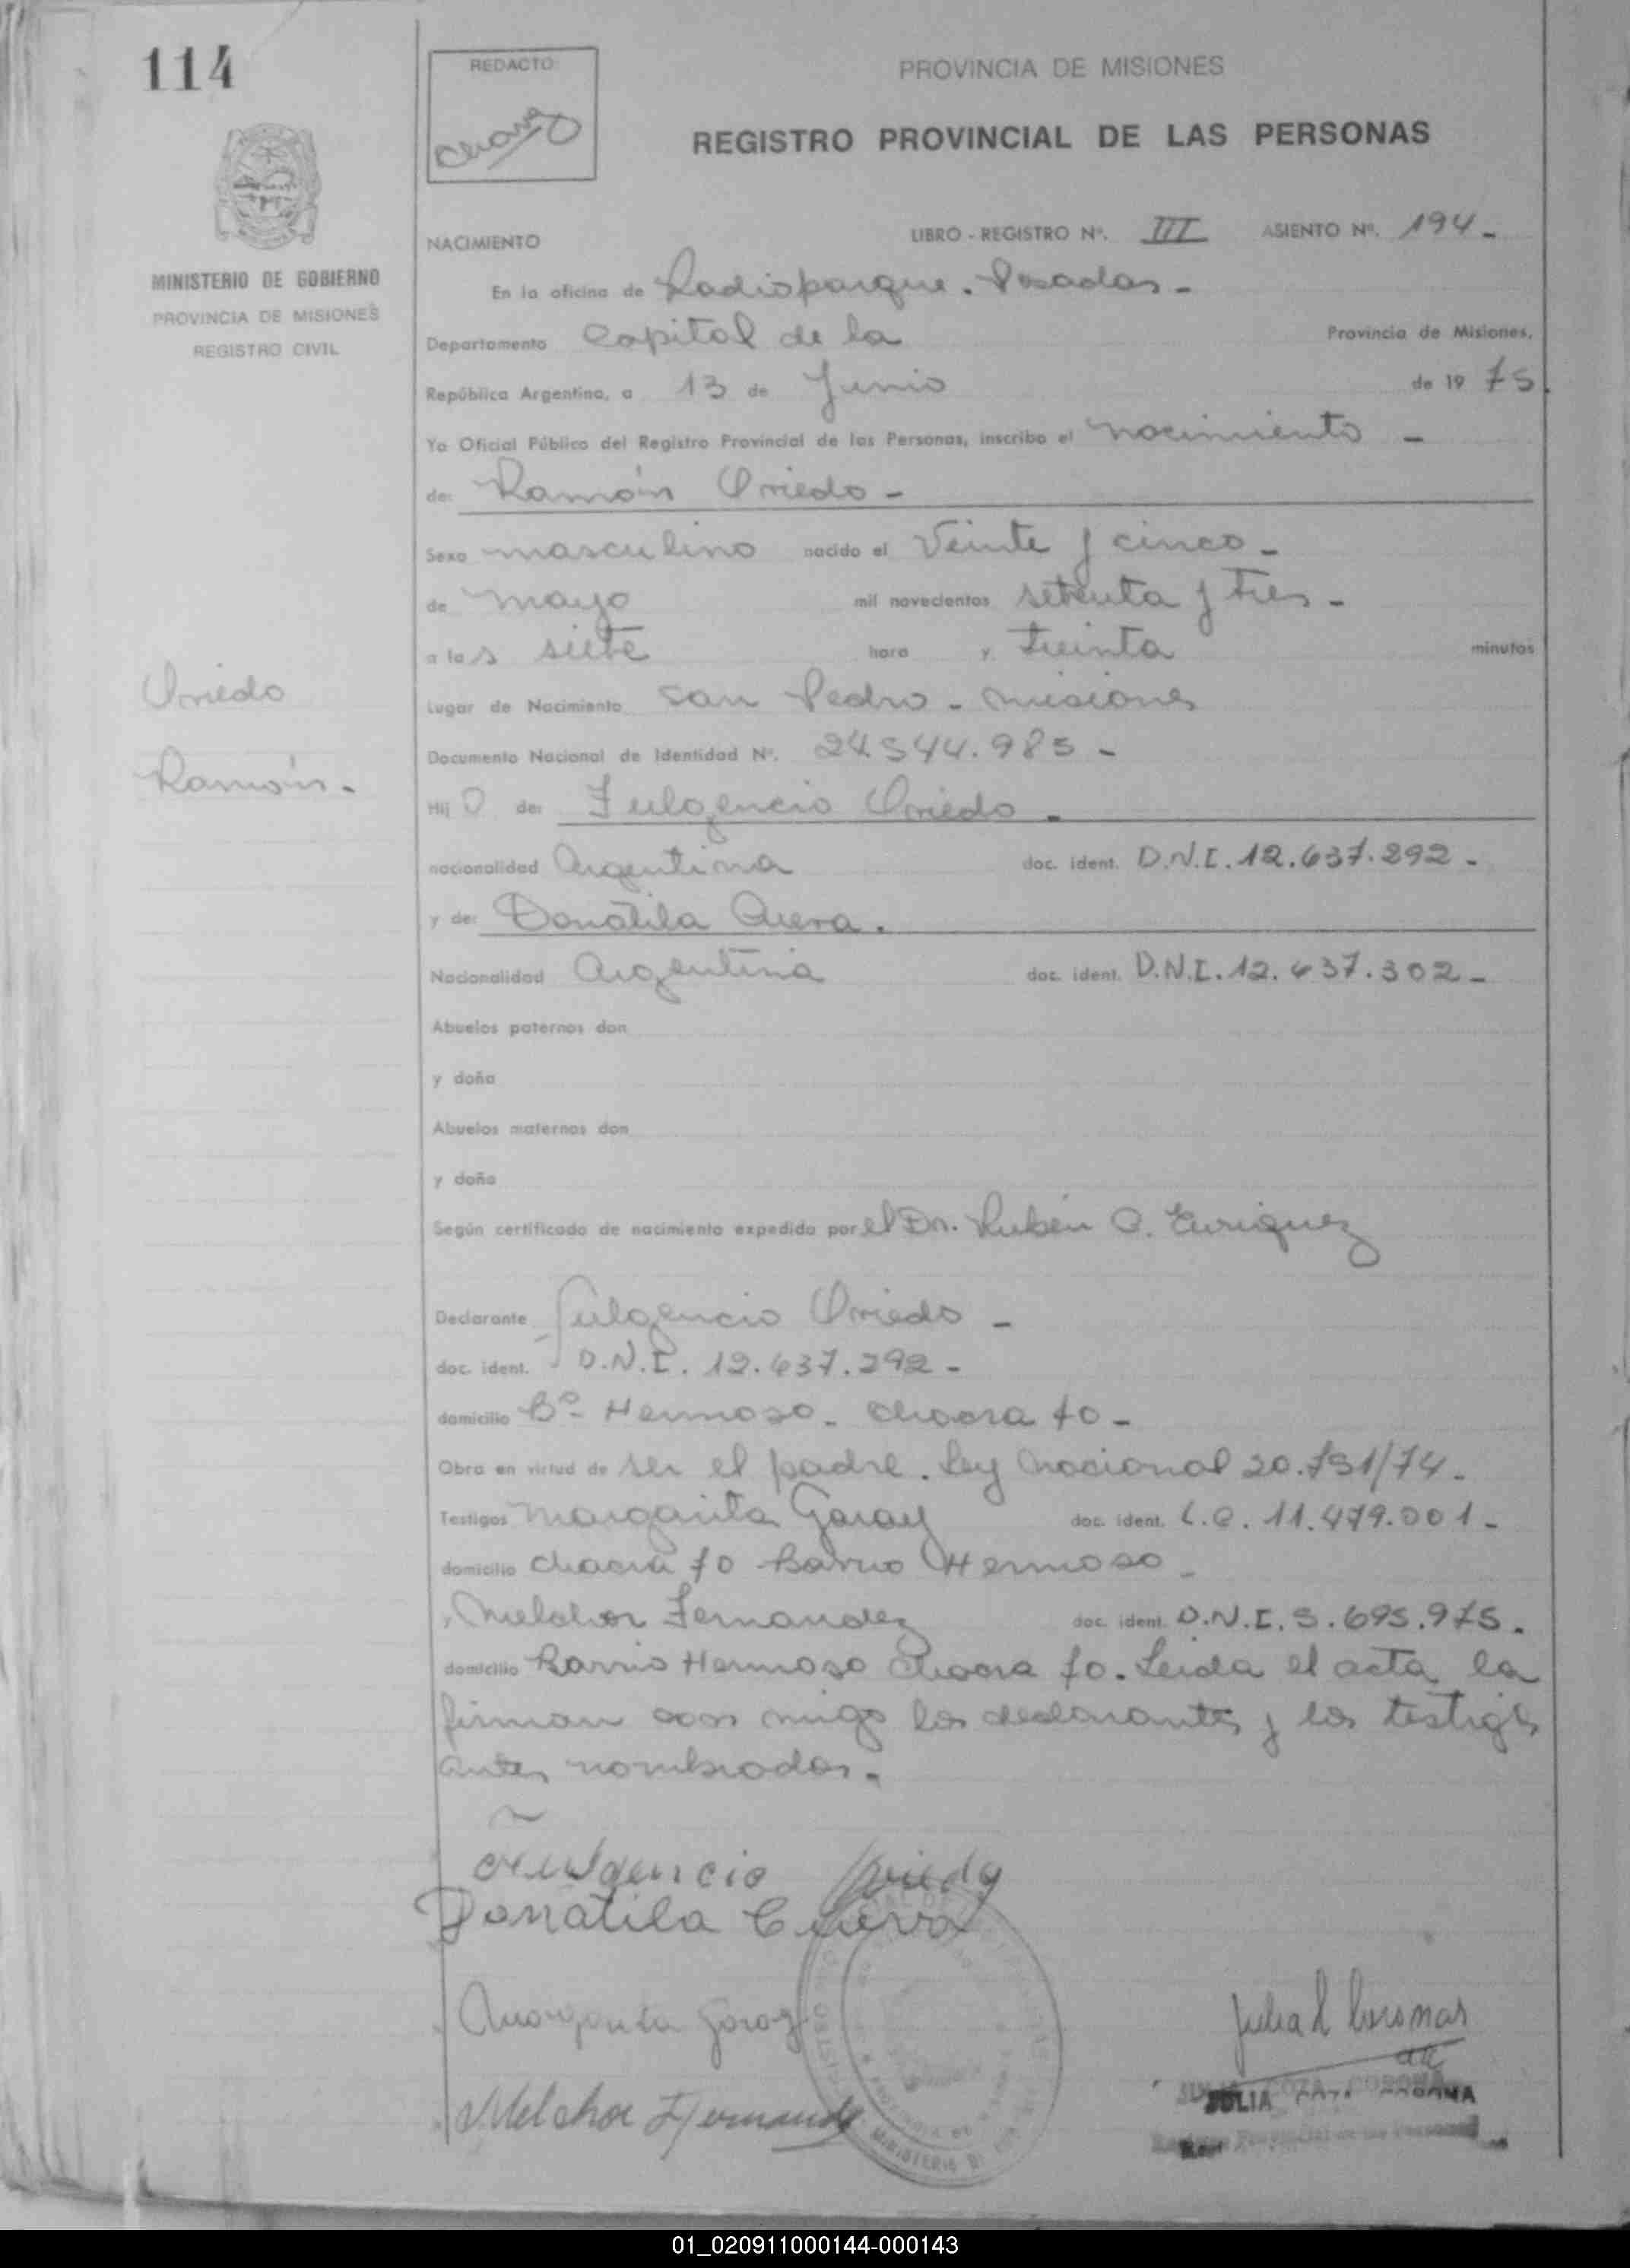 114
REDACTO
PROVINCIA DE MISIONES
REGISTRO PROVINCIAL DE LAS PERSONAS
MINISTERIO DE GOBIERNO
PROVINCIA DE MISIONES
REGISTRO CIVIL
NACIMIENTO LIBRO - REGISTRO Nº. III ASIENTO Nº. 194 -
En la oficina de Radioparque. Posadas -
Departamento Capital de la Provincia de Misiones,
República Argentina, a 13 de Junio de 19 75.
Yo Oficial Público del Registro Provincial de las Personas, inscribo el nacimiento -
de: Ramón Oviedo -
Sexo masculino nacido el Veinte y cinco -
de mayo mil novecientos setenta y tres -
a las siete hora y treinta minutos
Oviedo
Ramón -
Lugar de Nacimiento San Pedro - Misiones
Documento Nacional de Identidad Nº. 24.544.985 -
Hij o de: Fulgencio Oviedo -
nacionalidad Argentina doc. ident. D.N.I. 12.637.292 -
y de: Donatila
Nacionalidad Argentina doc. ident. D.N.I. 12.637.302 -
Abuelos paternos don
y doña
Abuelos maternos don
y doña
Según certificado de nacimiento expedido por el Dr. Rubén O. Enriquez
Declarante Fulgencio Oviedo -
doc. ident. D.N.I. 12.637.292 -
domicilio Bº Hermoso - chacra 70 -
Obra en virtud de ser el padre. Ley Nacional 20.751/74 -
Testigos Margarita Garay doc. ident. L.C. 11.479.001 -
domicilio chacra 70 Barrio Hermoso -
y Melchor Fernandez doc. ident. D.N.I. 5.695.975.
domicilio Barrio Hermoso Chacra 70. Leida el acta la
firman con migo los declarantes y los testigos
antes nombrados. -
Fulgencio Oviedo
Donatila
Margarita Garay
Melchor Fernande
Julia
JULIA
MINISTERIO
01_020911000144-000143